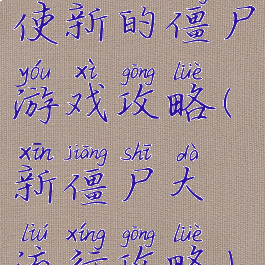 使新的僵尸
yóu xì gōng lüè
游戏攻略(
xīn jiāng shī dà
新僵尸大
liú xíng gōng lüè
流行攻略)